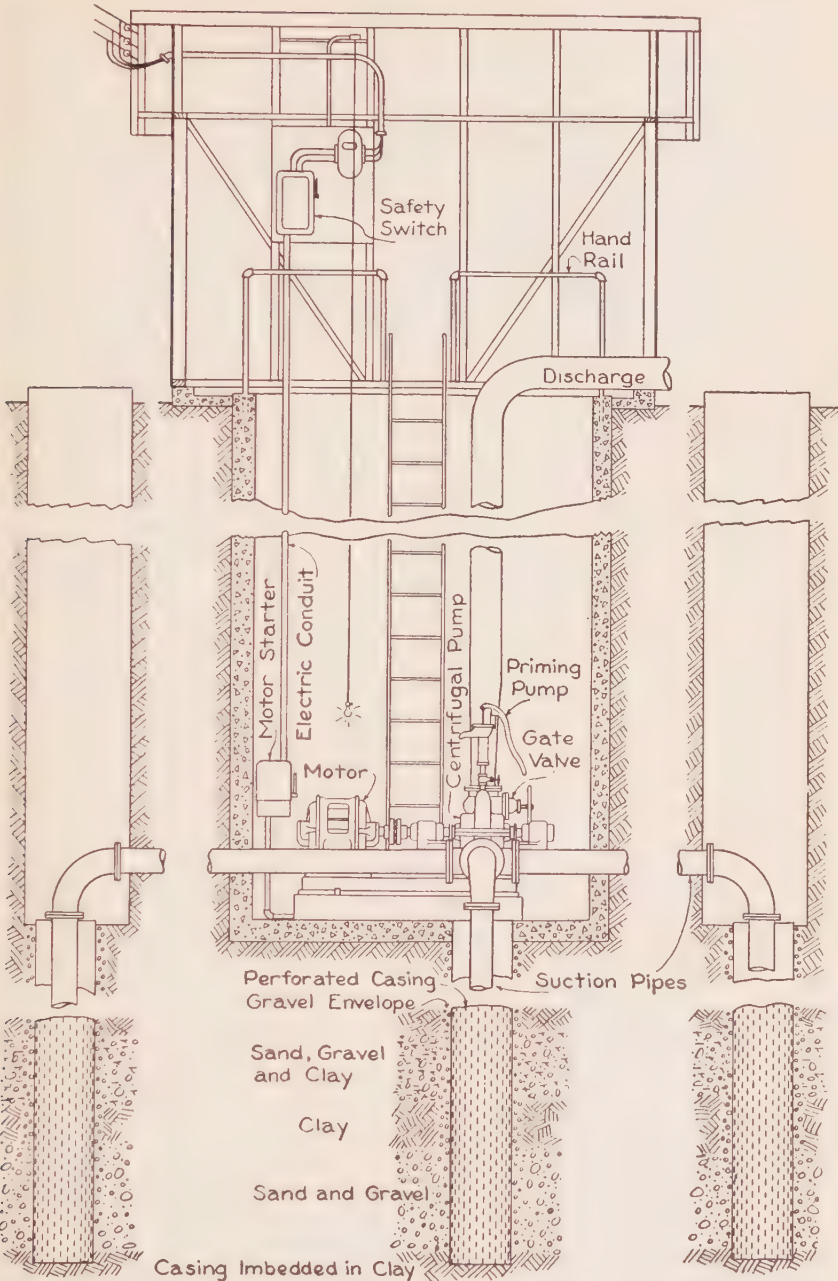 Safety
Switch
Hand
Rail
Discharge
Motor Starter
Electric Conduit
Centrifugal Pump
Priming
Pump
Gate
Valve
Motor
Perforated Casing
Gravel Envelope
Suction Pipes
Sand, Gravel
and Clay
Clay
Sand and Gravel
Casing Imbedded in Clay